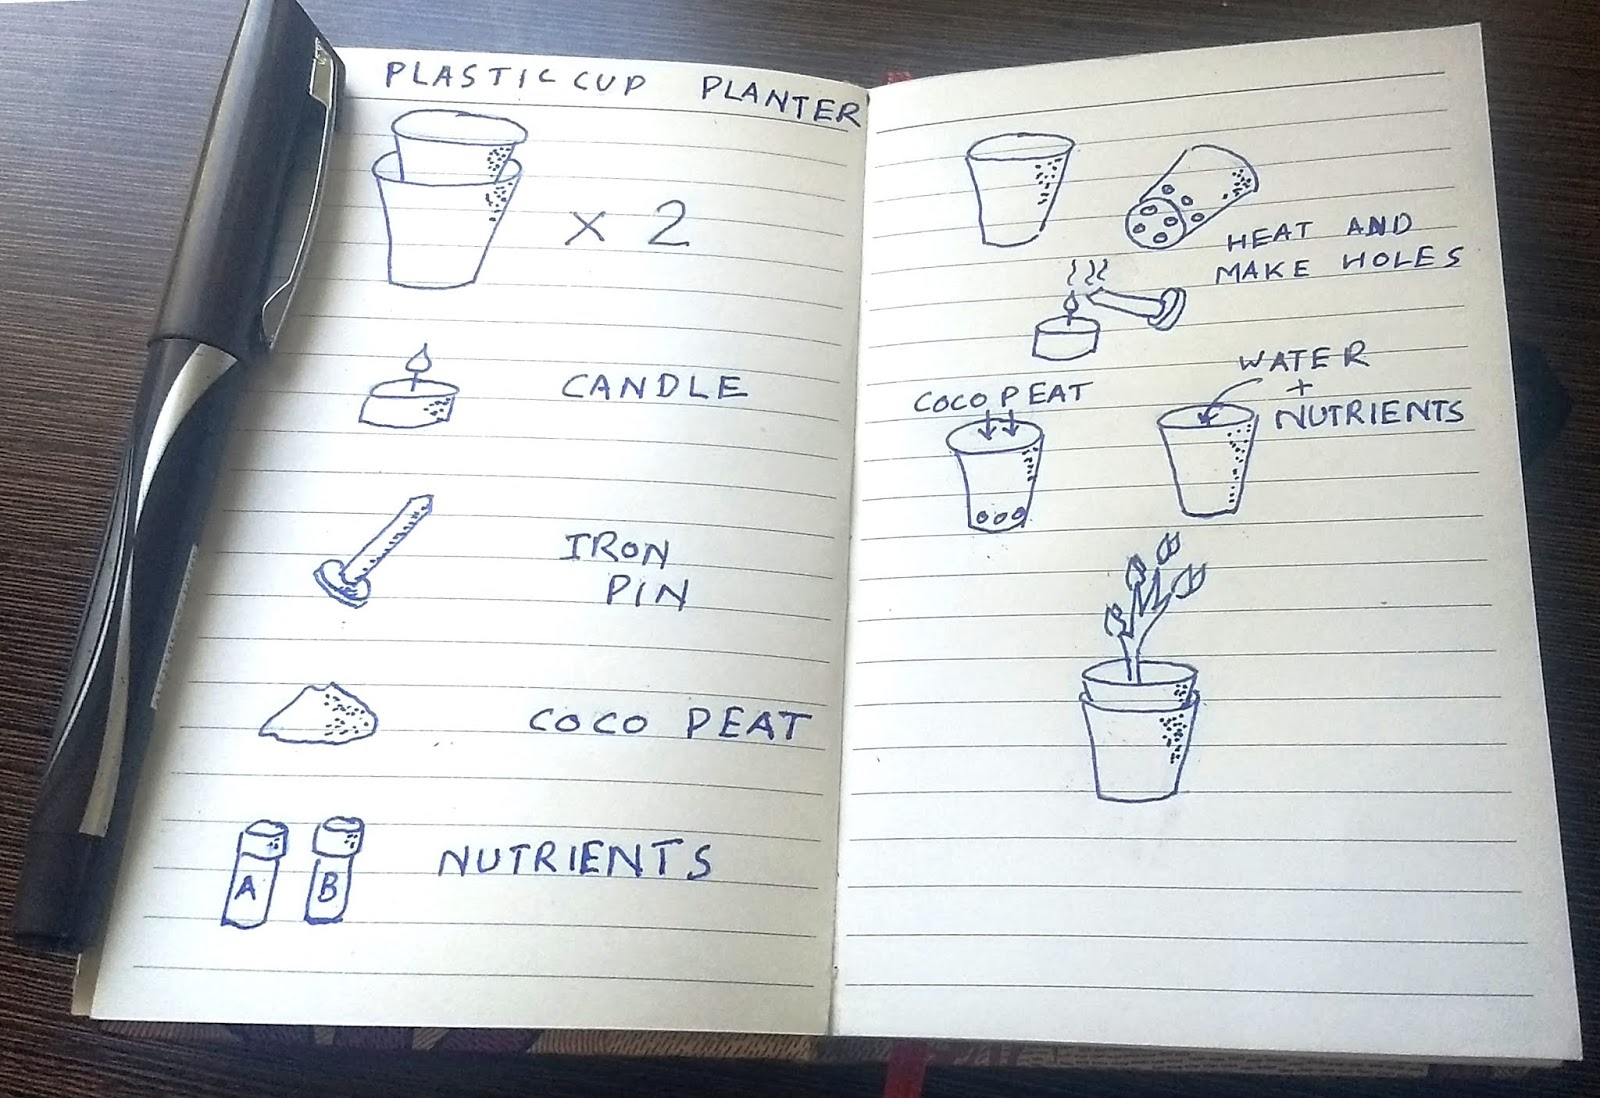 PLASTIC CUP PLANTER
x 2
CANDLE
IRON
PIN
COCO PEAT
A B
NUTRIENTS
HEAT AND
MAKE HOLES
COCO PEAT
WATER
+
NUTRIENTS